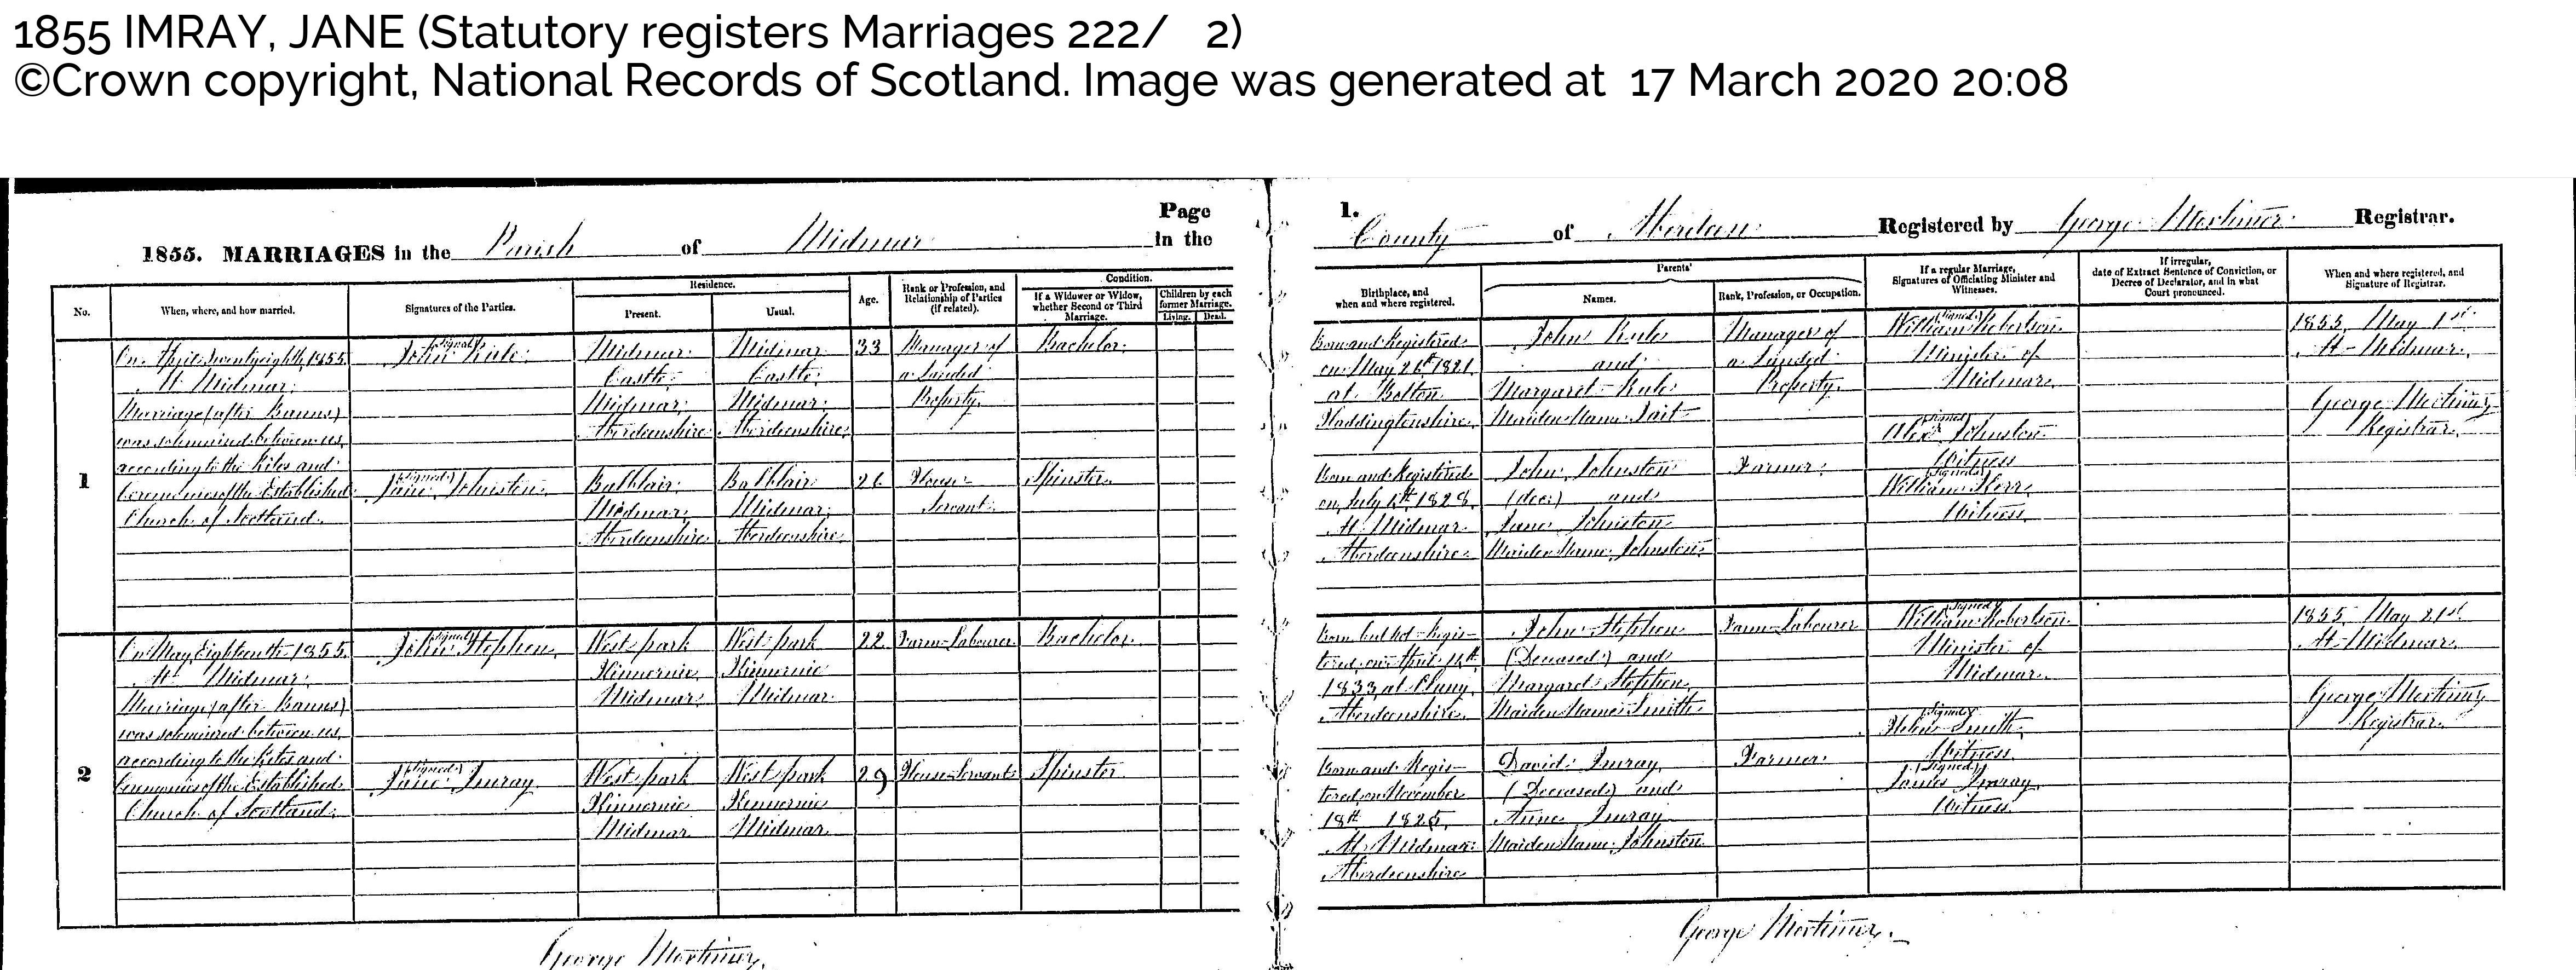 1855 IMRAY, JANE (Statutory registers Marriages 222/ 2)
©Crown copyright, National Records of Scotland. Image was generated at 17 March 2020 20:08
Page 1.
1855. MARRIAGES in the Parish of Midmar in the County of Aberdeen Registered by George Mortimer Registrar.
No.
When, where, and how married.
Signatures of the Parties.
Residence.
Present.
Usual.
Age.
Rank or Profession, and
Relationship of Parties
(if related).
Condition.
If a Widower or Widow,
whether Second or Third
Marriage.
Children by each
former Marriage.
Living.
Dead.
Birthplace, and
when and where registered.
Parents'
Names.
Rank, Profession, or Occupation.
If a regular Marriage,
Signatures of Officiating Minister and
Witnesses.
If irregular,
date of Extract Sentence of Conviction, or
Decree of Declarator, and in what
Court pronounced.
When and where registered, and
Signature of Registrar.
1
On April twentyeighth, 1855.
At Midmar.
Marriage (after Banns)
was solemnized between us,
according to the Rites and
Ceremonies of the Established
Church of Scotland.
(Signed)
John Rule
Midmar
Castle
Midmar
Aberdeenshire
Midmar
Castle
Midmar
Aberdeenshire
33
Manager of
a Landed
Property.
Bachelor
Born and Registered
on May 26th 1821
at Bolton
Haddingtonshire
John Rule
and
Margaret Rule
Maiden Name Tait
Manager of
a Landed
Property
(Signed)
William Robertson
Minister of
Midmar
(Signed)
Alexr Johnston
Witness
(Signed)
William Kerr
Witness
1855, May 1st
At Midmar
George Mortimer
Registrar.
(Signed)
Jane Johnston
Balblair
Midmar
Aberdeenshire
Balblair
Midmar
Aberdeenshire
26
House
Servant
Spinster
Born and Registered
on July 1828
At Midmar
Aberdeenshire
John Johnston
(dec.) and
Jane Johnston
Maiden Name Johnston
Farmer
2
On May Eighteenth 1855.
At Midmar
Marriage (after Banns)
was solemnized between us,
according to the Rites and
Ceremonies of the Established
Church of Scotland.
(Signed)
John Stephen
West park
Kinnernie
Midmar
West park
Kinnernie
Midmar
22
Farm-Labourer
Bachelor
Born but not Regis-
tered on April 14th
1833, at Cluny
Aberdeenshire
John Stephen
(Deceased) and
Margaret Stephen
Maiden Name Smith
Farm-Labourer
(Signed)
William Robertson
Minister of
Midmar
(Signed)
Helen Smith
Witness
(Signed)
James Imray
Witness
1855, May 21st
At Midmar
George Mortimer
Registrar.
(Signed)
Jane Imray
West park
Kinnernie
Midmar
West park
Kinnernie
Midmar
29
House-Servant
Spinster
Born and Regis-
tered on November
18th 1825
At Midmar
Aberdeenshire
David Imray
(Deceased) and
Anne Imray
Maiden Name Johnston
Farmer
George Mortimer.
George Mortimer.